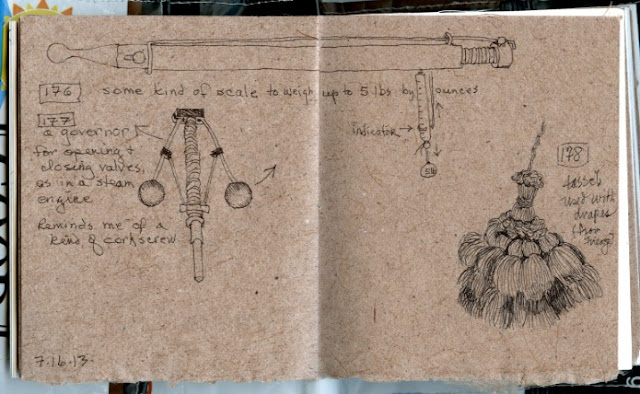 176 some kind of scale to weigh up to 5 lbs by ounces
177
a governor
for opening +
closing valves,
as in a steam
engine
Reminds me of a
kind of corkscrew
indicator
178
tassels
used with
drapes
(from
7.16.13.